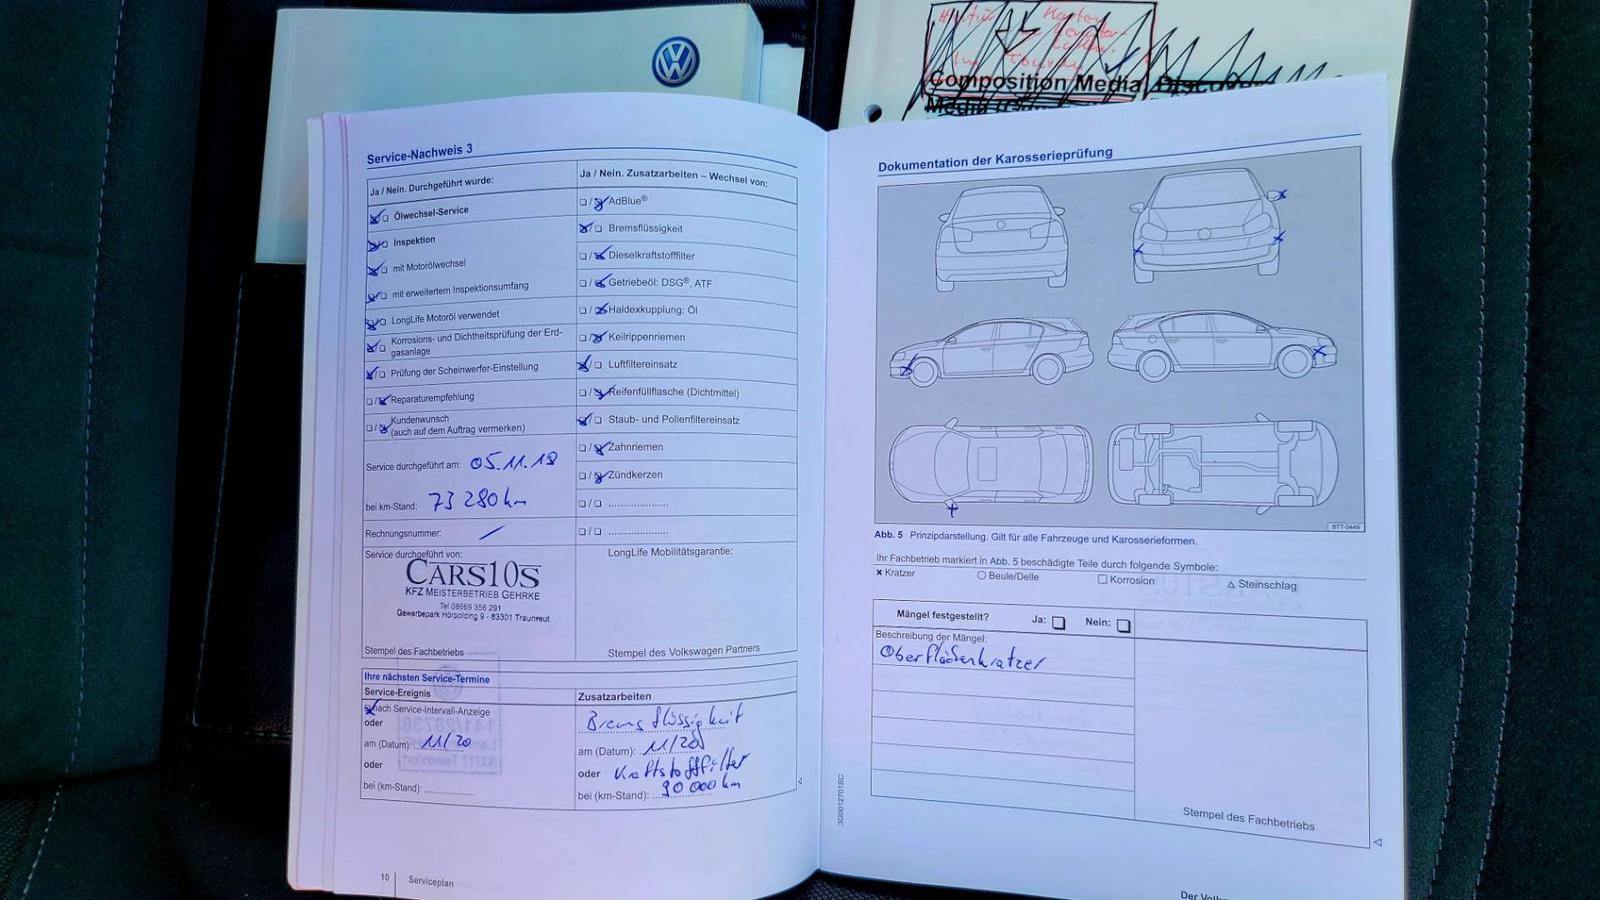 Composition Media
Service-Nachweis 3
Ja / Nein. Durchgeführt wurde:
Ölwechsel-Service
Inspektion
mit Motorölwechsel
mit erweitertem Inspektionsumfang
LongLife Motoröl verwendet
Korrosions- und Dichtheitsprüfung der Erd-
gasanlage
Prüfung der Scheinwerfer-Einstellung
Reparaturempfehlung
Kundenwunsch
(auch auf dem Auftrag vermerken)
Service durchgeführt am: 05.11.18
bei km-Stand: 73 280 km
Rechnungsnummer: /
Service durchgeführt von:
CARS10S
KFZ MEISTERBETRIEB GEHRKE
Tel 08669 356 291
Gewerbepark Hörpolding 9 - 83301 Traunreut
Stempel des Fachbetriebs
Ja / Nein. Zusatzarbeiten – Wechsel von:
AdBlue®
Bremsflüssigkeit
Dieselkraftstofffilter
Getriebeöl: DSG®, ATF
Haldexkupplung: Öl
Keilrippenriemen
Luftfiltereinsatz
Reifenfüllflasche (Dichtmittel)
Staub- und Pollenfiltereinsatz
Zahnriemen
Zündkerzen
LongLife Mobilitätsgarantie:
Stempel des Volkswagen Partners
Ihre nächsten Service-Termine
Service-Ereignis
nach Service-Intervall-Anzeige
oder
am (Datum): 11/20
oder
bei (km-Stand):
Zusatzarbeiten
Bremsflüssigkeit
am (Datum): 11/20
oder Kraftstofffilter
bei (km-Stand): 90 000 km
10 Serviceplan
Dokumentation der Karosserieprüfung
BTT-0449
Abb. 5 Prinzipdarstellung. Gilt für alle Fahrzeuge und Karosserieformen.
Ihr Fachbetrieb markiert in Abb. 5 beschädigte Teile durch folgende Symbole:
× Kratzer ○ Beule/Delle □ Korrosion △ Steinschlag
Mängel festgestellt? Ja: Nein:
Beschreibung der Mängel:
Oberflächenkratzer
Stempel des Fachbetriebs
3G0012701BC